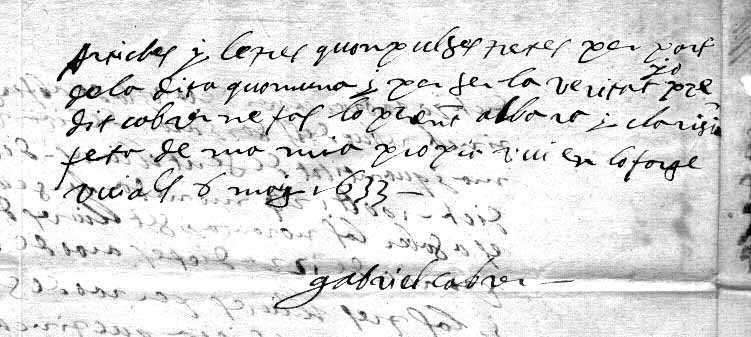 Articles y letres quonpulses tretes per part
de la dita quomuna y per ser la veritat jo pre
dit cabrer ne fas lo present albara y clarisia
feta de ma mia propia vui en lo forge
vuia als 6 maig 1633
gabriel cabrer